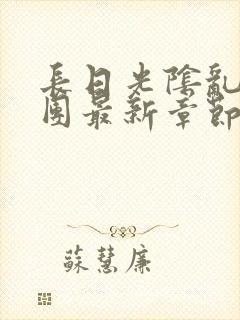 長日光陰亂
團最新章節
蘇慧廉